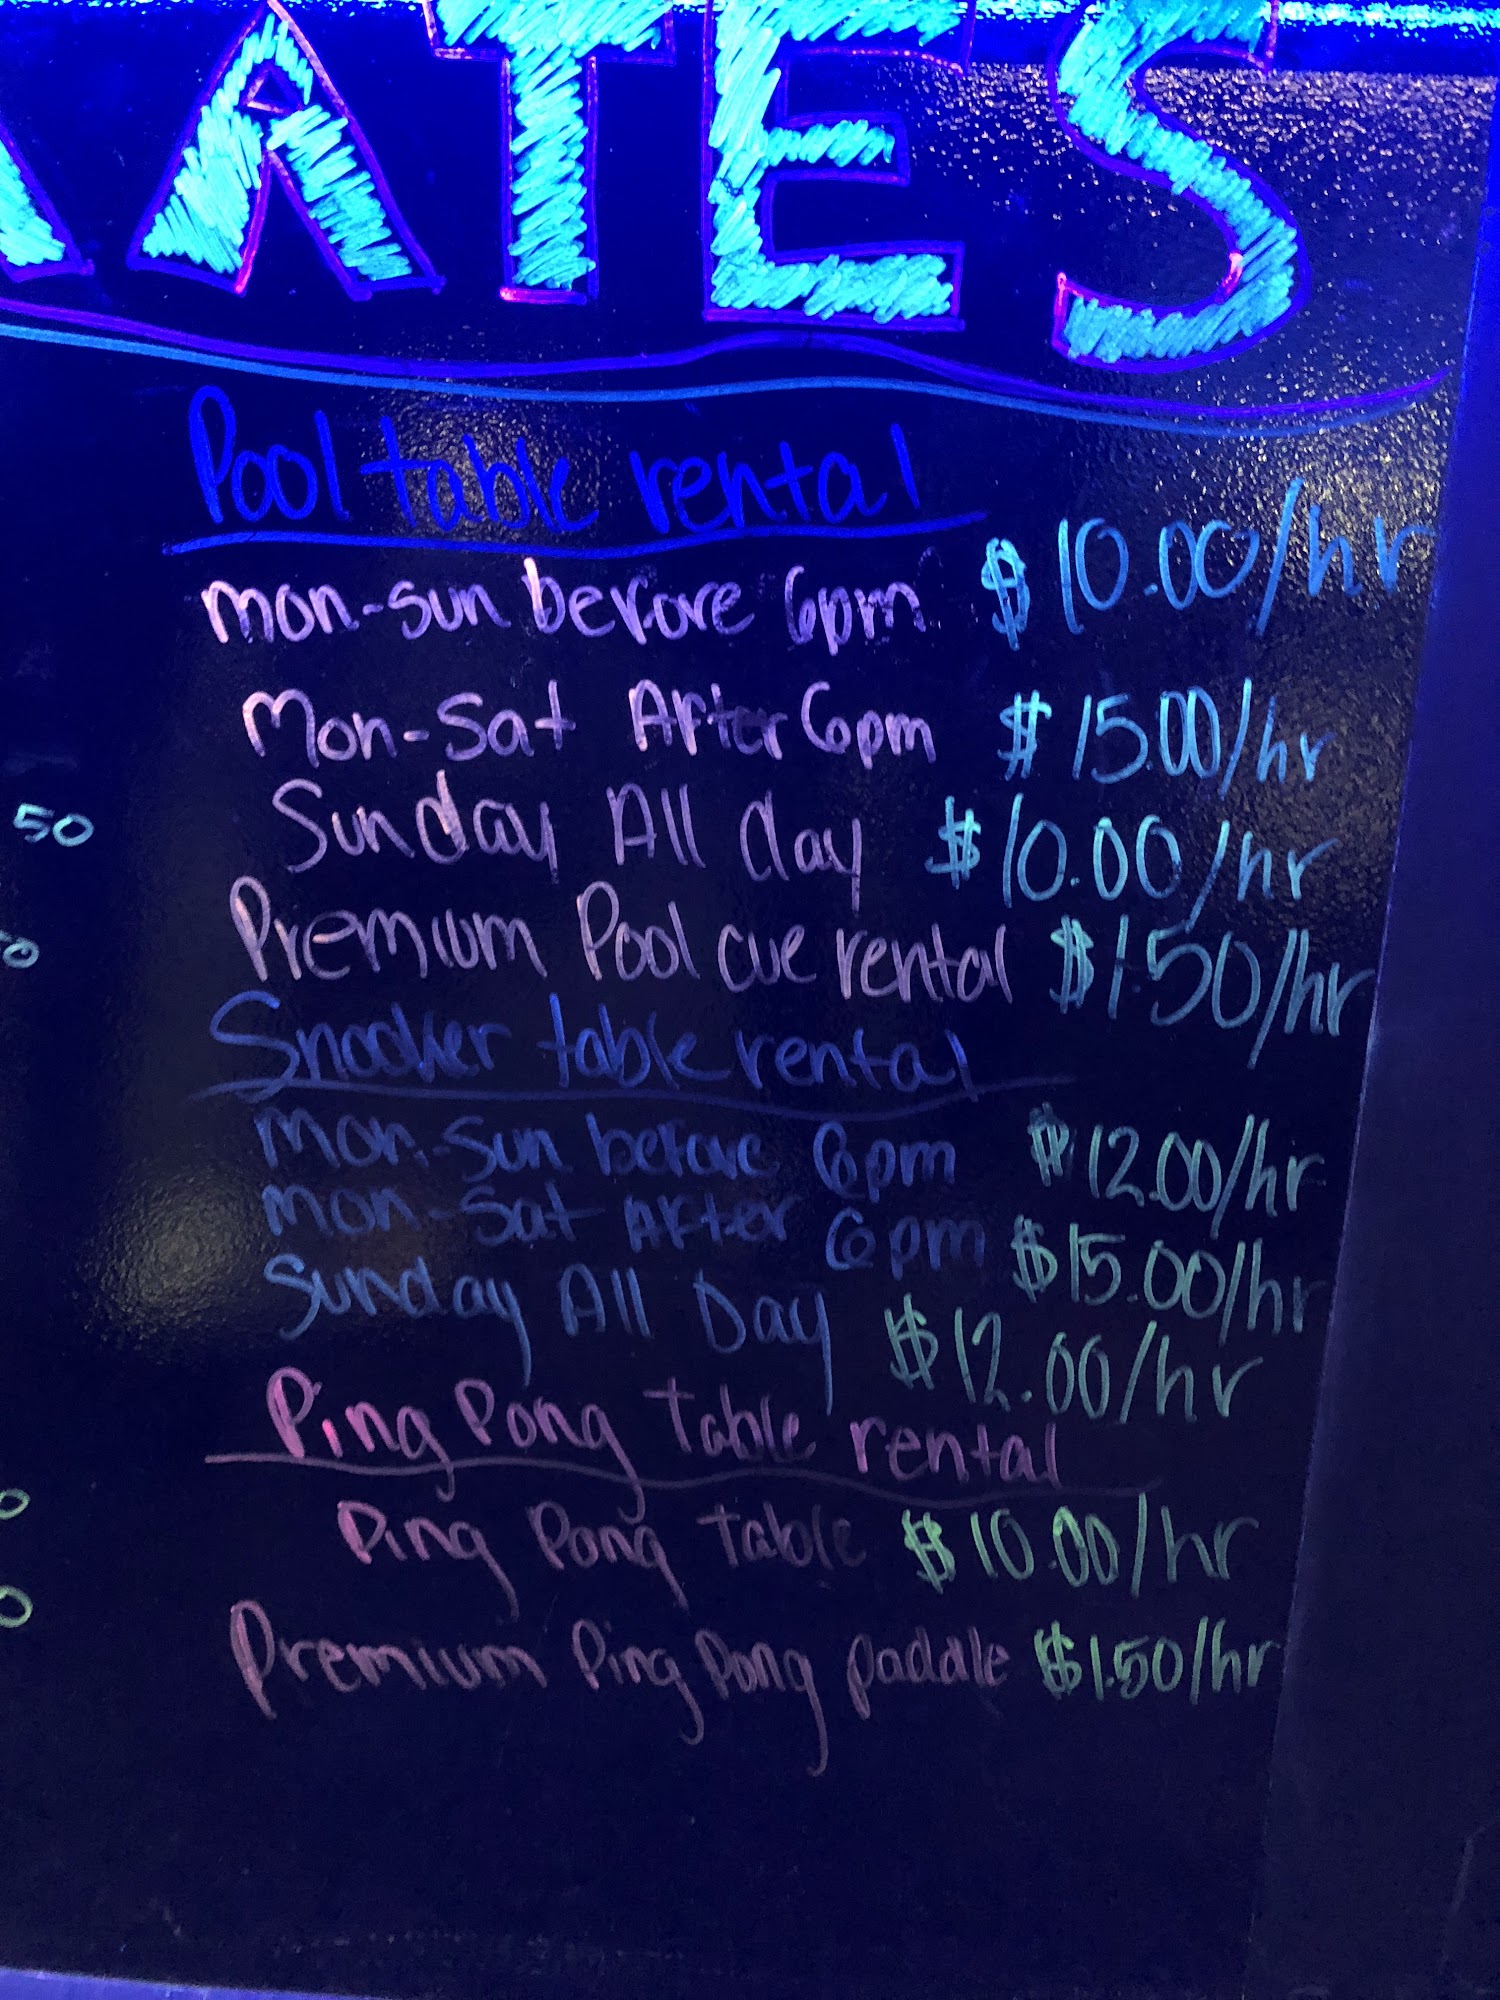 RATES
Pool table rental
mon-sun before 6pm $10.00/hr
Mon-Sat After 6pm $15.00/hr
Sunday All day $10.00/hr
Premium Pool cue rental $1.50/hr
Snooker table rental
mon-sun before 6pm $12.00/hr
mon-sat After 6pm $15.00/hr
Sunday All Day $12.00/hr
Ping Pong Table rental
Ping Pong table $10.00/hr
Premium Ping Pong paddle $1.50/hr
50